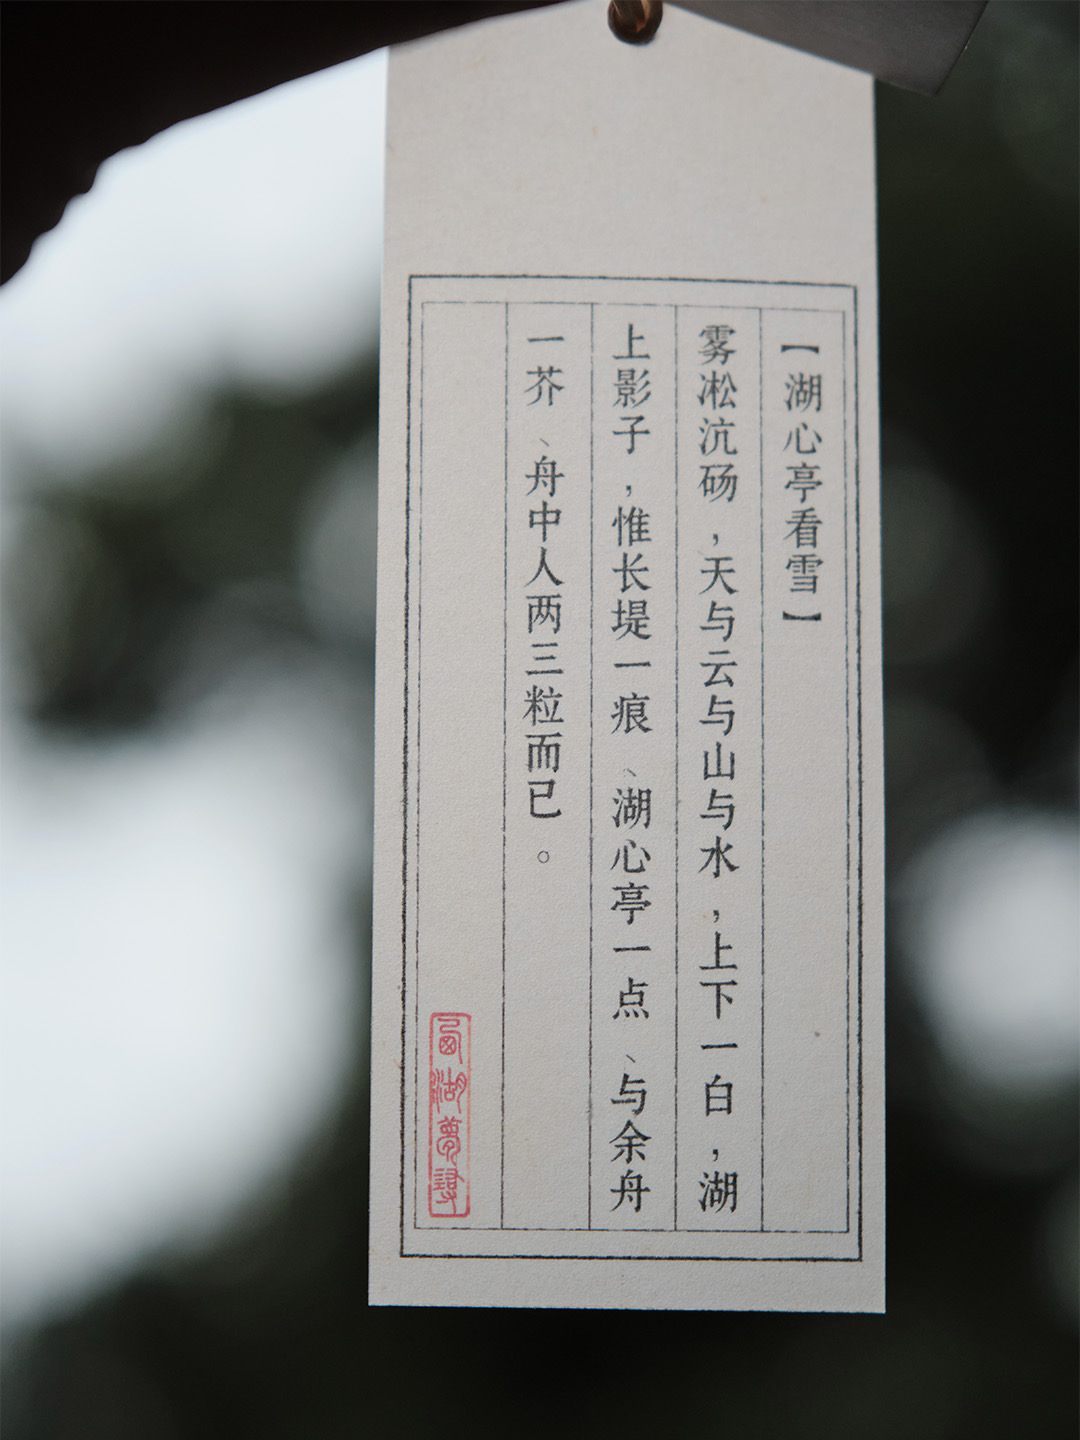 【湖心亭看雪】
雾凇沆砀，天与云与山与水，上下一白，湖
上影子，惟长堤一痕、湖心亭一点、与余舟
一芥、舟中人两三粒而已。
西湖梦寻